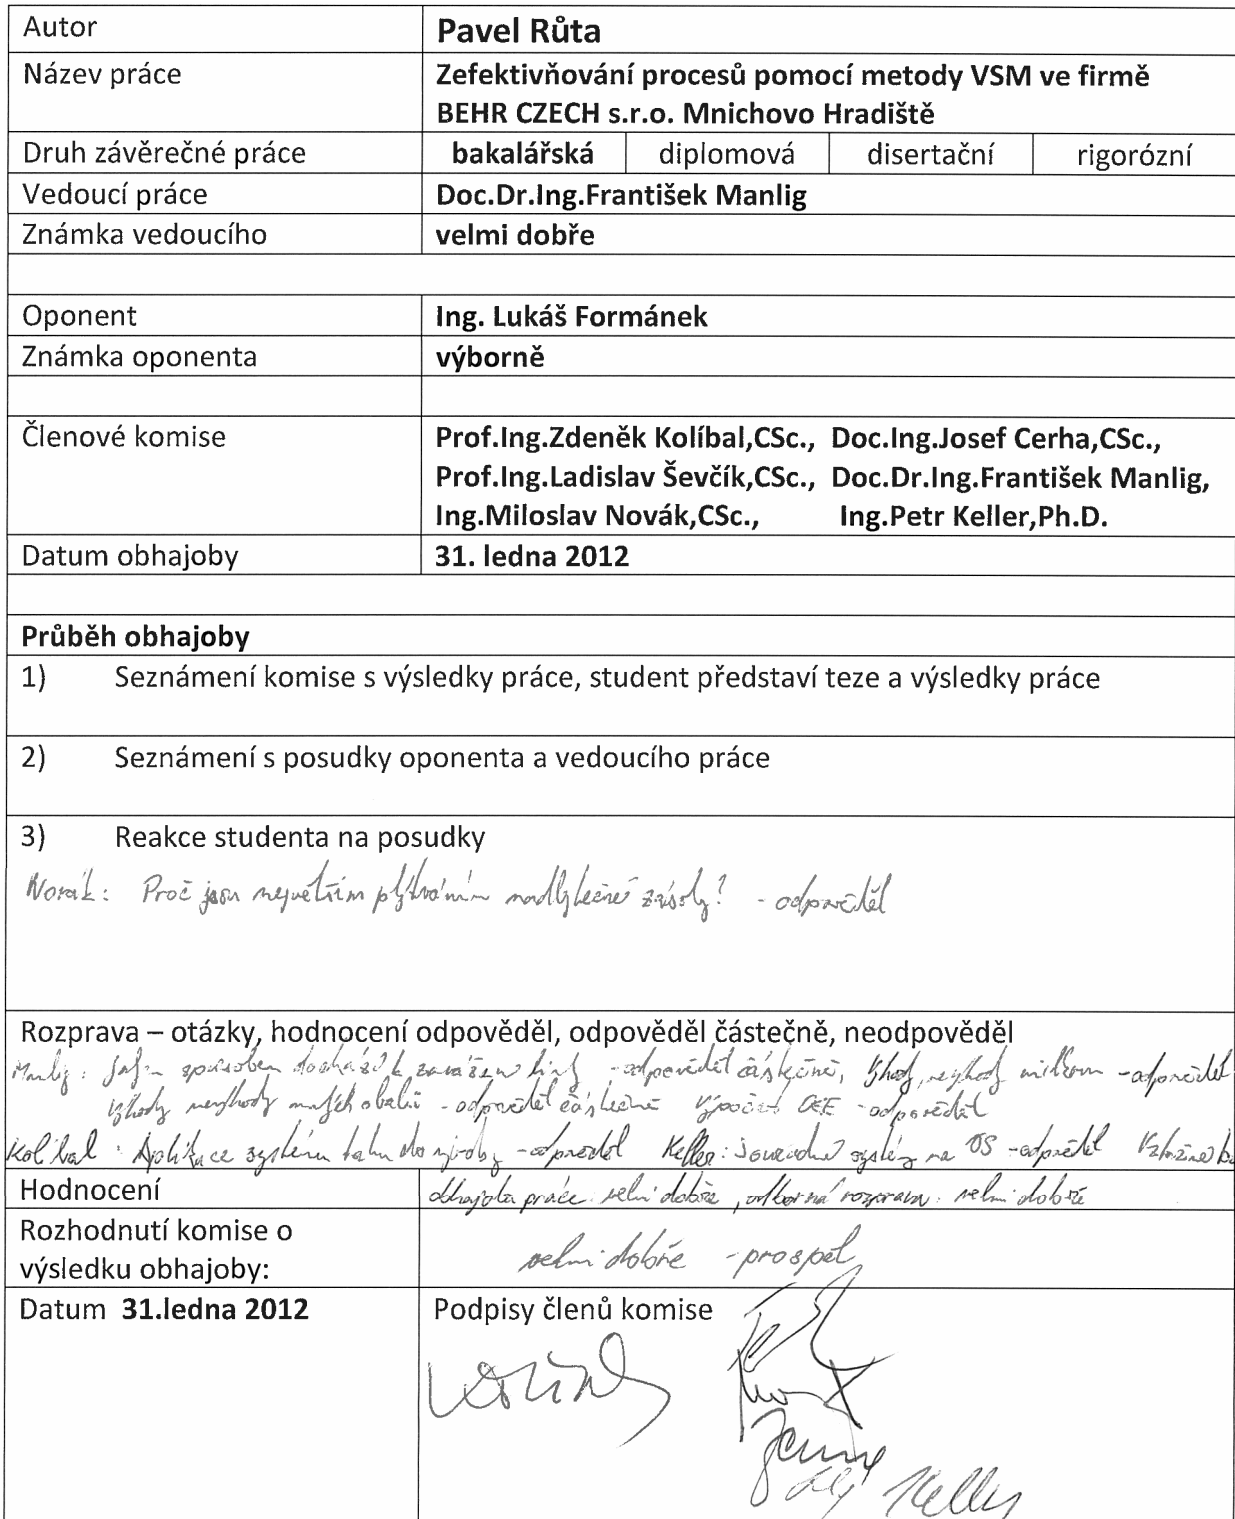 Autor Pavel Růta
Název práce Zefektivňování procesů pomocí metody VSM ve firmě
BEHR CZECH s.r.o. Mnichovo Hradiště
Druh závěrečné práce bakalářská diplomová disertační rigorózní
Vedoucí práce Doc.Dr.Ing.František Manlig
Známka vedoucího velmi dobře
Oponent Ing. Lukáš Formánek
Známka oponenta výborně
Členové komise Prof.Ing.Zdeněk Kolíbal,CSc., Doc.Ing.Josef Cerha,CSc.,
Prof.Ing.Ladislav Ševčík,CSc., Doc.Dr.Ing.František Manlig,
Ing.Miloslav Novák,CSc., Ing.Petr Keller,Ph.D.
Datum obhajoby 31. ledna 2012
Průběh obhajoby
1) Seznámení komise s výsledky práce, student představí teze a výsledky práce
2) Seznámení s posudky oponenta a vedoucího práce
3) Reakce studenta na posudky
Novák: Proč jsou největším plýtváním nadbytečné zásoby? - odpověděl
Rozprava – otázky, hodnocení odpověděl, odpověděl částečně, neodpověděl
Manlig: Jakým způsobem dochází k zavážení - odpověděl částečně, výhody, nevýhody - odpověděl
výhody nevýhody malých obalů - odpověděl částečně výpočet OEE - odpověděl
Kolíbal: Aplikace systému tahu do výroby - odpověděl Keller: systém na OS - odpověděl
Hodnocení obhajoba práce: velmi dobře, odborná rozprava: velmi dobře
Rozhodnutí komise o
výsledku obhajoby: velmi dobře - prospěl
Datum 31.ledna 2012 Podpisy členů komise
Keller